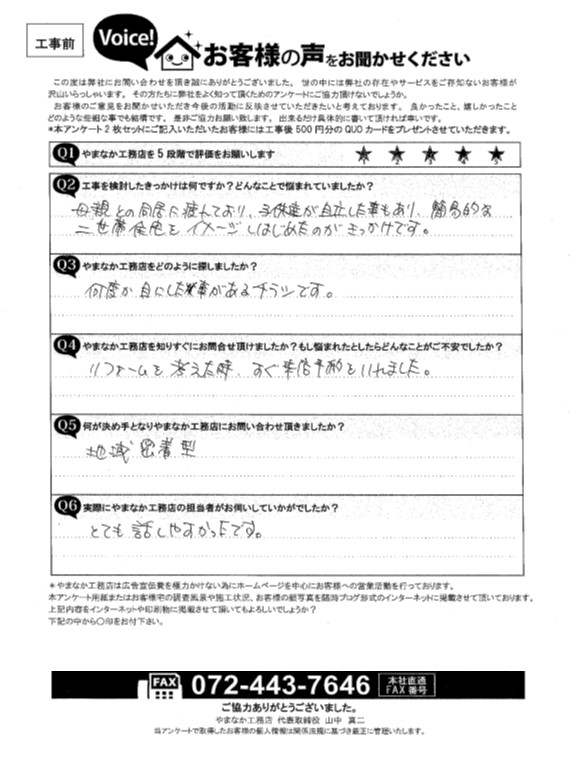 工事前
Voice!
お客様の声をお聞かせください
この度は弊社にお問い合わせを頂き誠にありがとうございました。世の中には弊社の存在やサービスをご存知ないお客様が
沢山いらっしゃいます。その方たちに弊社をよく知って頂くためのアンケートにご協力頂けないでしょうか。
お客様のご意見をお聞かせいただき今後の活動に反映させていただきたいと考えております。良かったこと、嬉しかったこと
どのような些細な事でも結構です。是非ご協力お願い致します。出来るだけ具体的に書いて頂ければ幸いです。
*本アンケート2枚セットにご記入いただいたお客様には工事後500円分のQUOカードをプレゼントさせていただきます。
Q1 やまなか工務店を5段階で評価をお願いします
1 2 3 4 5
Q2 工事を検討したきっかけは何ですか?どんなことで悩まれていましたか?
母親との同居に疲れており、子供達が自立した事もあり、簡易的な
二世帯住宅をイメージしはじめたのがきっかけです。
Q3 やまなか工務店をどのように探しましたか?
何度か目にした事があるチラシです。
Q4 やまなか工務店を知りすぐにお問合せ頂けましたか?もし悩まれたとしたらどんなことがご不安でしたか?
リフォームを考えた時、すぐ来店予約をいれました。
Q5 何が決め手となりやまなか工務店にお問い合わせ頂きましたか?
地域密着型
Q6 実際にやまなか工務店の担当者がお伺いしていかがでしたか?
とても話しやすかったです。
*やまなか工務店は広告宣伝費を極力かけない為にホームページを中心にお客様への営業活動を行っております。
本アンケート用紙またはお客様宅の調査風景や施工状況、お客様の顔写真を随時ブログ形式のインターネットに掲載させて頂いております。
上記内容をインターネットや印刷物に掲載させて頂いてもよろしいでしょうか?
下記の中から○印をお付下さい。
FAX 072-443-7646 本社直通
FAX番号
ご協力ありがとうございました。
やまなか工務店 代表取締役 山中 真二
当アンケートで取得したお客様の個人情報は関係法規に基づき厳正に管理いたします。